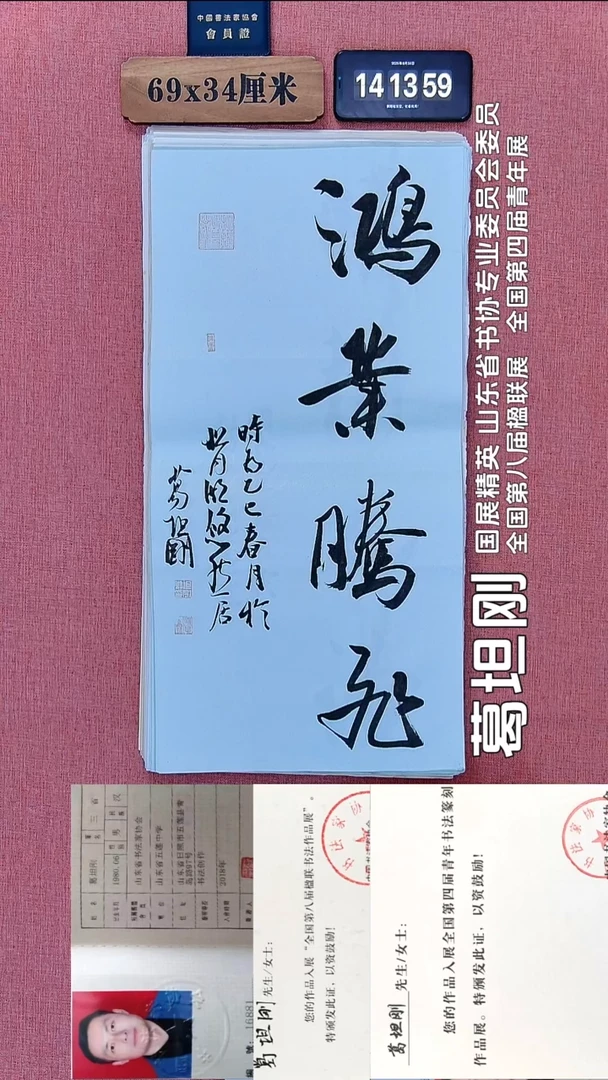 中國書法家協會
會員證
69x34厘米
14 13 59
鴻業騰飛
時在乙巳春月於
葛坦剛
国展精英 山东省书协专业委员会委员
全国第八届楹联展 全国第四届青年展
葛坦刚
葛坦刚
山东省书法家协会
山东省五莲中学
书法创作
2018年
16881
葛坦刚 先生/女士：
您的作品入展“全国第八届楹联书法作品展”。
特颁发此证，以资鼓励！
葛坦刚 先生/女士：
您的作品入展全国第四届青年书法篆刻
作品展。特颁发此证，以资鼓励！